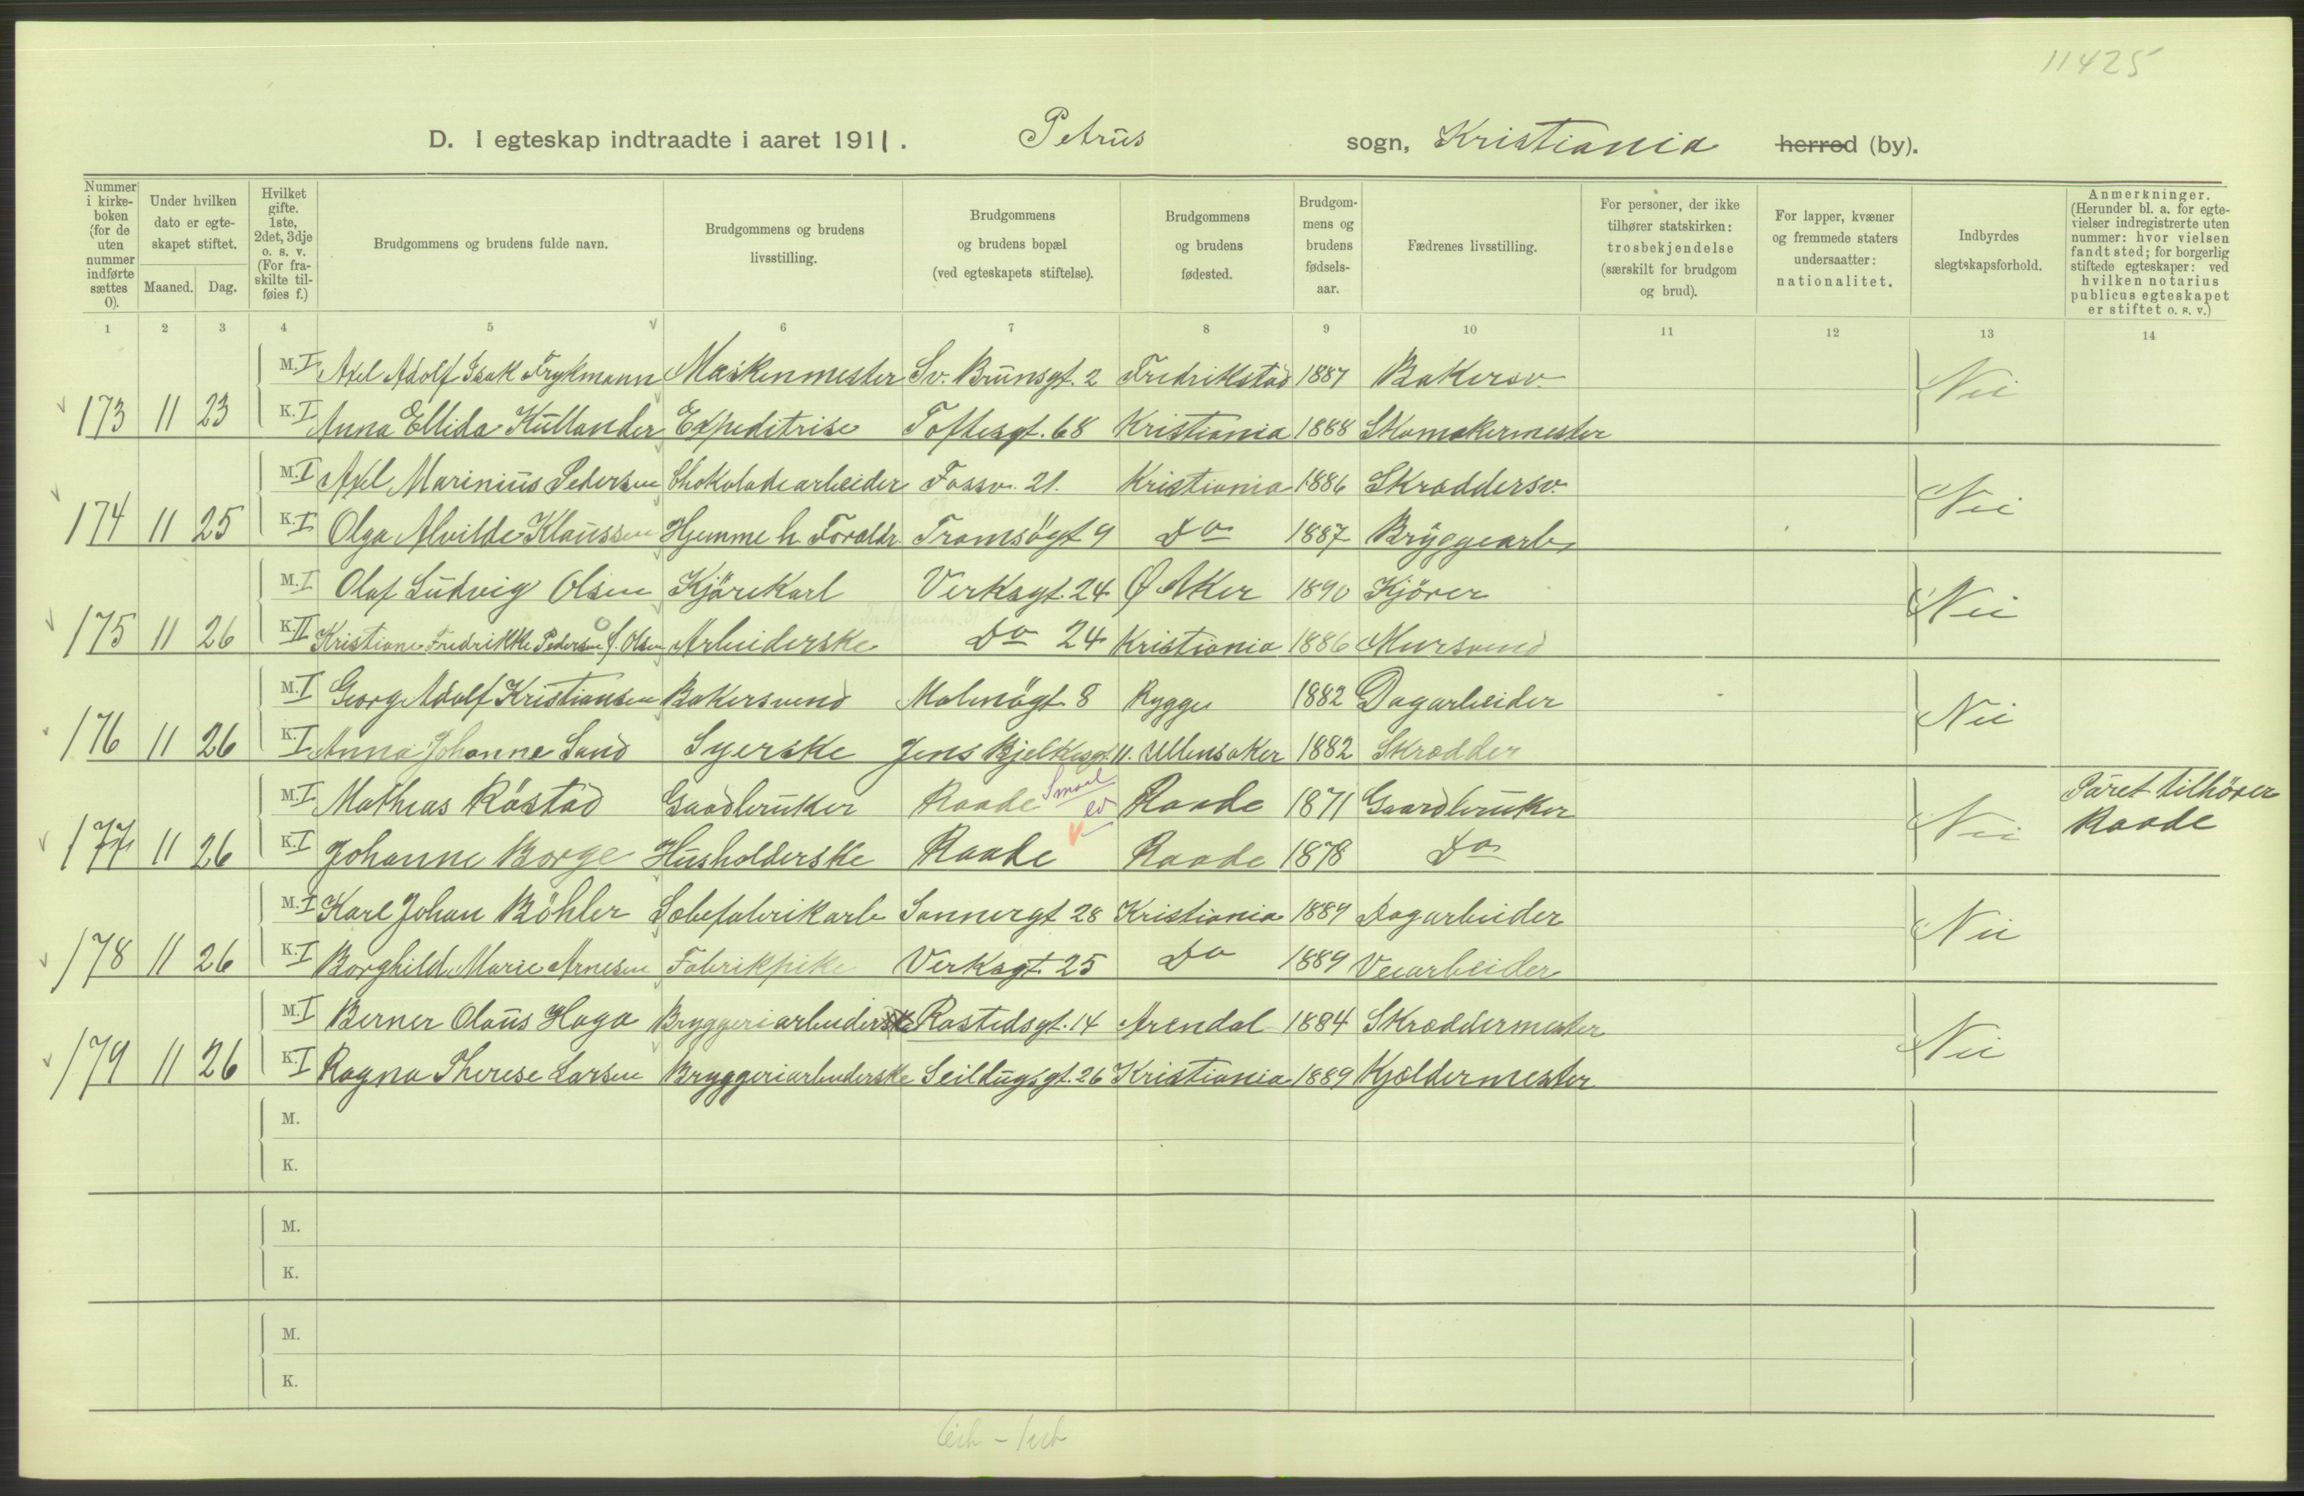 11425
D. I egteskap indtraadte i aaret 1911. Petrus sogn, Kristiania herred (by).
Nummer i kirkeboken (for de uten nummer indførte sættes 0).
Under hvilken dato er egteskapet stiftet.
Maaned. Dag.
Hvilket gifte. 1ste, 2det, 3dje o. s. v. (For fraskilte tilføies f.)
Brudgommens og brudens fulde navn.
Brudgommens og brudens livsstilling.
Brudgommens og brudens bopæl (ved egteskapets stiftelse).
Brudgommens og brudens fødested.
Brudgommens og brudens fødselsaar.
Fædrenes livsstilling.
For personer, der ikke tilhører statskirken: trosbekjendelse (særskilt for brudgom og brud).
For lapper, kvæner og fremmede staters undersaatter: nationalitet.
Indbyrdes slegtskapsforhold.
Anmerkninger. (Herunder bl. a. for egtevielser indregistrerte uten nummer: hvor vielsen fandt sted; for borgerlig stiftede egteskaper: ved hvilken notarius publicus egteskapet er stiftet o. s. v.)
1 2 3 4 5 6 7 8 9 10 11 12 13 14
M. I Axel Adolf Isak Frykmann Maskinmester Sv. Brunsgt. 2 Fredrikstad 1887 Bakersv. Nei
173 11 23 K. I Anna Ellida Kullander Expeditrise Toftesgt. 68 Kristiania 1888 Skomakermester
M. I Axel Marinius Pedersen Chokoladearbeider Fossv. 21. Kristiania 1886 Skræddersv. Nei
174 11 25 K. I Olga Alvilde Klaussen Hjemme h. Foraldr. Tromsögt 9 Do 1887 Bryggearb.
M. I Olaf Ludvig Olsen Kjörekarl Verksgt. 24 Ø Aker 1890 Kjörer Nei
175 11 26 K. II Kristiane Fredrikke Pedersen f. Olsen Arbeiderske Do 24 Kristiania 1886 Mursvend
M. I Georg Adolf Kristiansen Bakersvend Malmögt 8 Rygge 1882 Dagarbeider Nei
176 11 26 K. I Anna Johanne Sand Syerske Jens Bjelkesgt. 11. Ullensaker 1882 Skrædder
M. I Mathias Röstad Gaardbruker Raade Smaal Raade 1871 Gaardbruker Nei Paret tilhörer Raade
177 11 26 K. I Johanne Borge Husholderske Raade Raade 1878 Do
M. I Karl Johan Böhler Sæbefabrikarb Sannergt 28 Kristiania 1889 Dagarbeider Nei
178 11 26 K. I Borghild Marie Arnesen Fabrikpike Verksgt. 25 Do 1889 Veiarbeider
M. I Berner Olaus Haga Bryggeriarbeider Rostedsgt. 14 Arendal 1884 Skræddermester Nei
179 11 26 K. I Ragna Therese Larsen Bryggeriarbeiderske Seildugsgt. 26 Kristiania 1889 Kjældermester
M.
K.
M.
K.
M.
K.